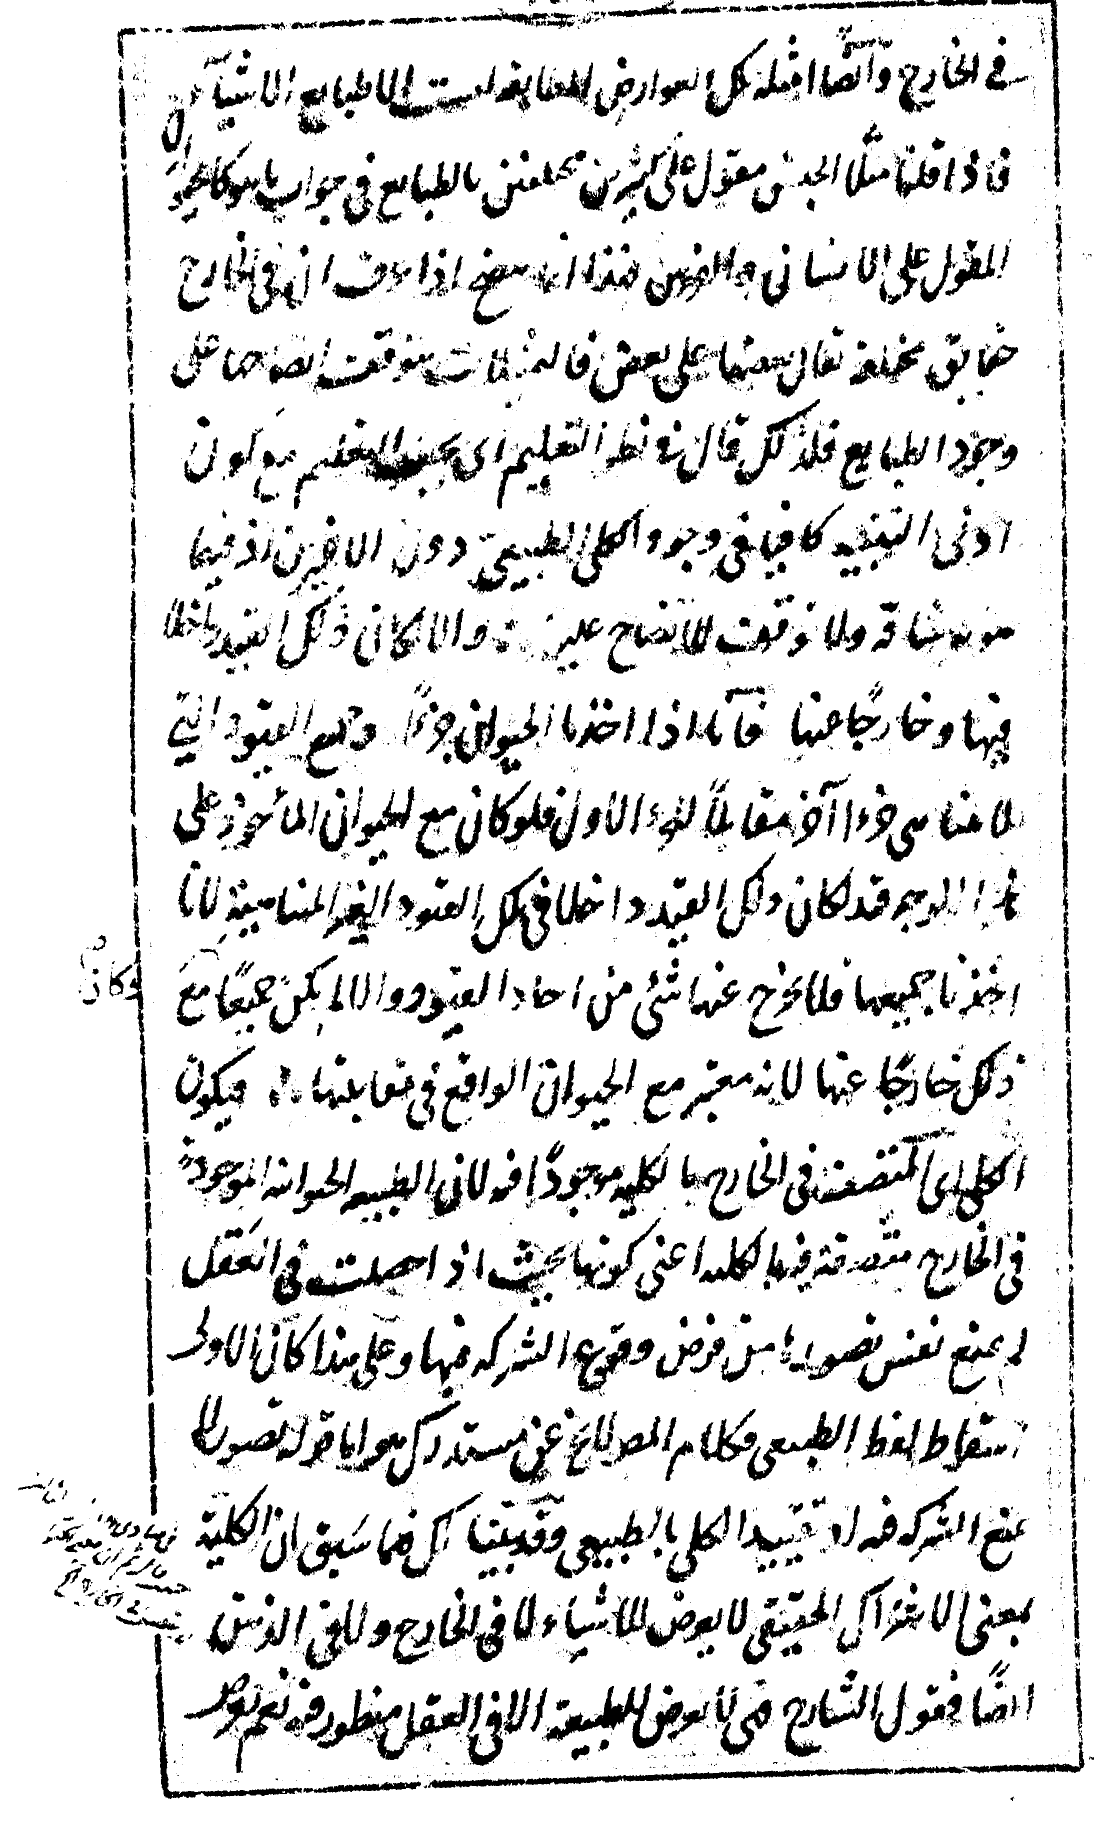 في الخارج وايضًا امثلة تلك العوارض المطابقة ليست الا طبايع الاشياء
فاذا قلنا مثلًا الجنس مقول على كثيرين مختلفين بالطبايع في جواب ما هو كالحيوان
المقول على الانسان والفرس فهذا انما يتضح اذا عرف ان في الخارج
حقايق مختلفة يقال بعضها على بعض فالتمثيلات يتوقف ايضاحها على
وجود الطبايع فلذلك قال في نظر التعليم اى بحسب التعليم مع كون
ادنى التنبيه كافيا في وجود الكلي الطبيعي دون الاخيرين اذ فيهما
مؤنة شاقة ولا توقف للاتضاح عليه والا لكان ذلك القيد داخلا
فيها وخارجًا عنها فانا اذا اخذنا الحيوان جزءًا وجميع القيود التي
لا تناسبه جزءا آخر مقابلًا للجزء الاول فلو كان مع الحيوان المأخوذ على
هذا الوجه قيد لكان ذلك القيد داخلا في تلك القيود الغير المناسبة لانا
اخذنا جميعها فلا يخرج عنها شئ من احاد القيود والا لم يكن جميعًا مع
ذلك خارجًا عنها لانه معتبر مع الحيوان الواقع في مقابلتها فيكون
الكلي اى المتصف في الخارج بالكلية موجودًا فيه لان الطبيعة الحيوانية الموجودة
في الخارج متصفة فيه بالكلية اعنى كونها بحيث اذا حصلت في العقل
لم يمنع نفس تصورها من فرض وقوع الشركة فيها وعلى هذا كان الاولى
اسقاط لفظ الطبيعي فكلام المص لا يخ عن مستدرك هو اما قوله تصوره لا
يمنع الشركة فيه او تقييد الكلي بالطبيعي وقد بينا لك فيما سبق ان الكلية
بمعنى الاشتراك الحقيقي لا يعرض للاشياء لا في الخارج ولا في الذهن
ايضًا فقول الشارح فهى لا تعرض للطبيعة الا في العقل منظور فيه نعم تعرض
لو كان